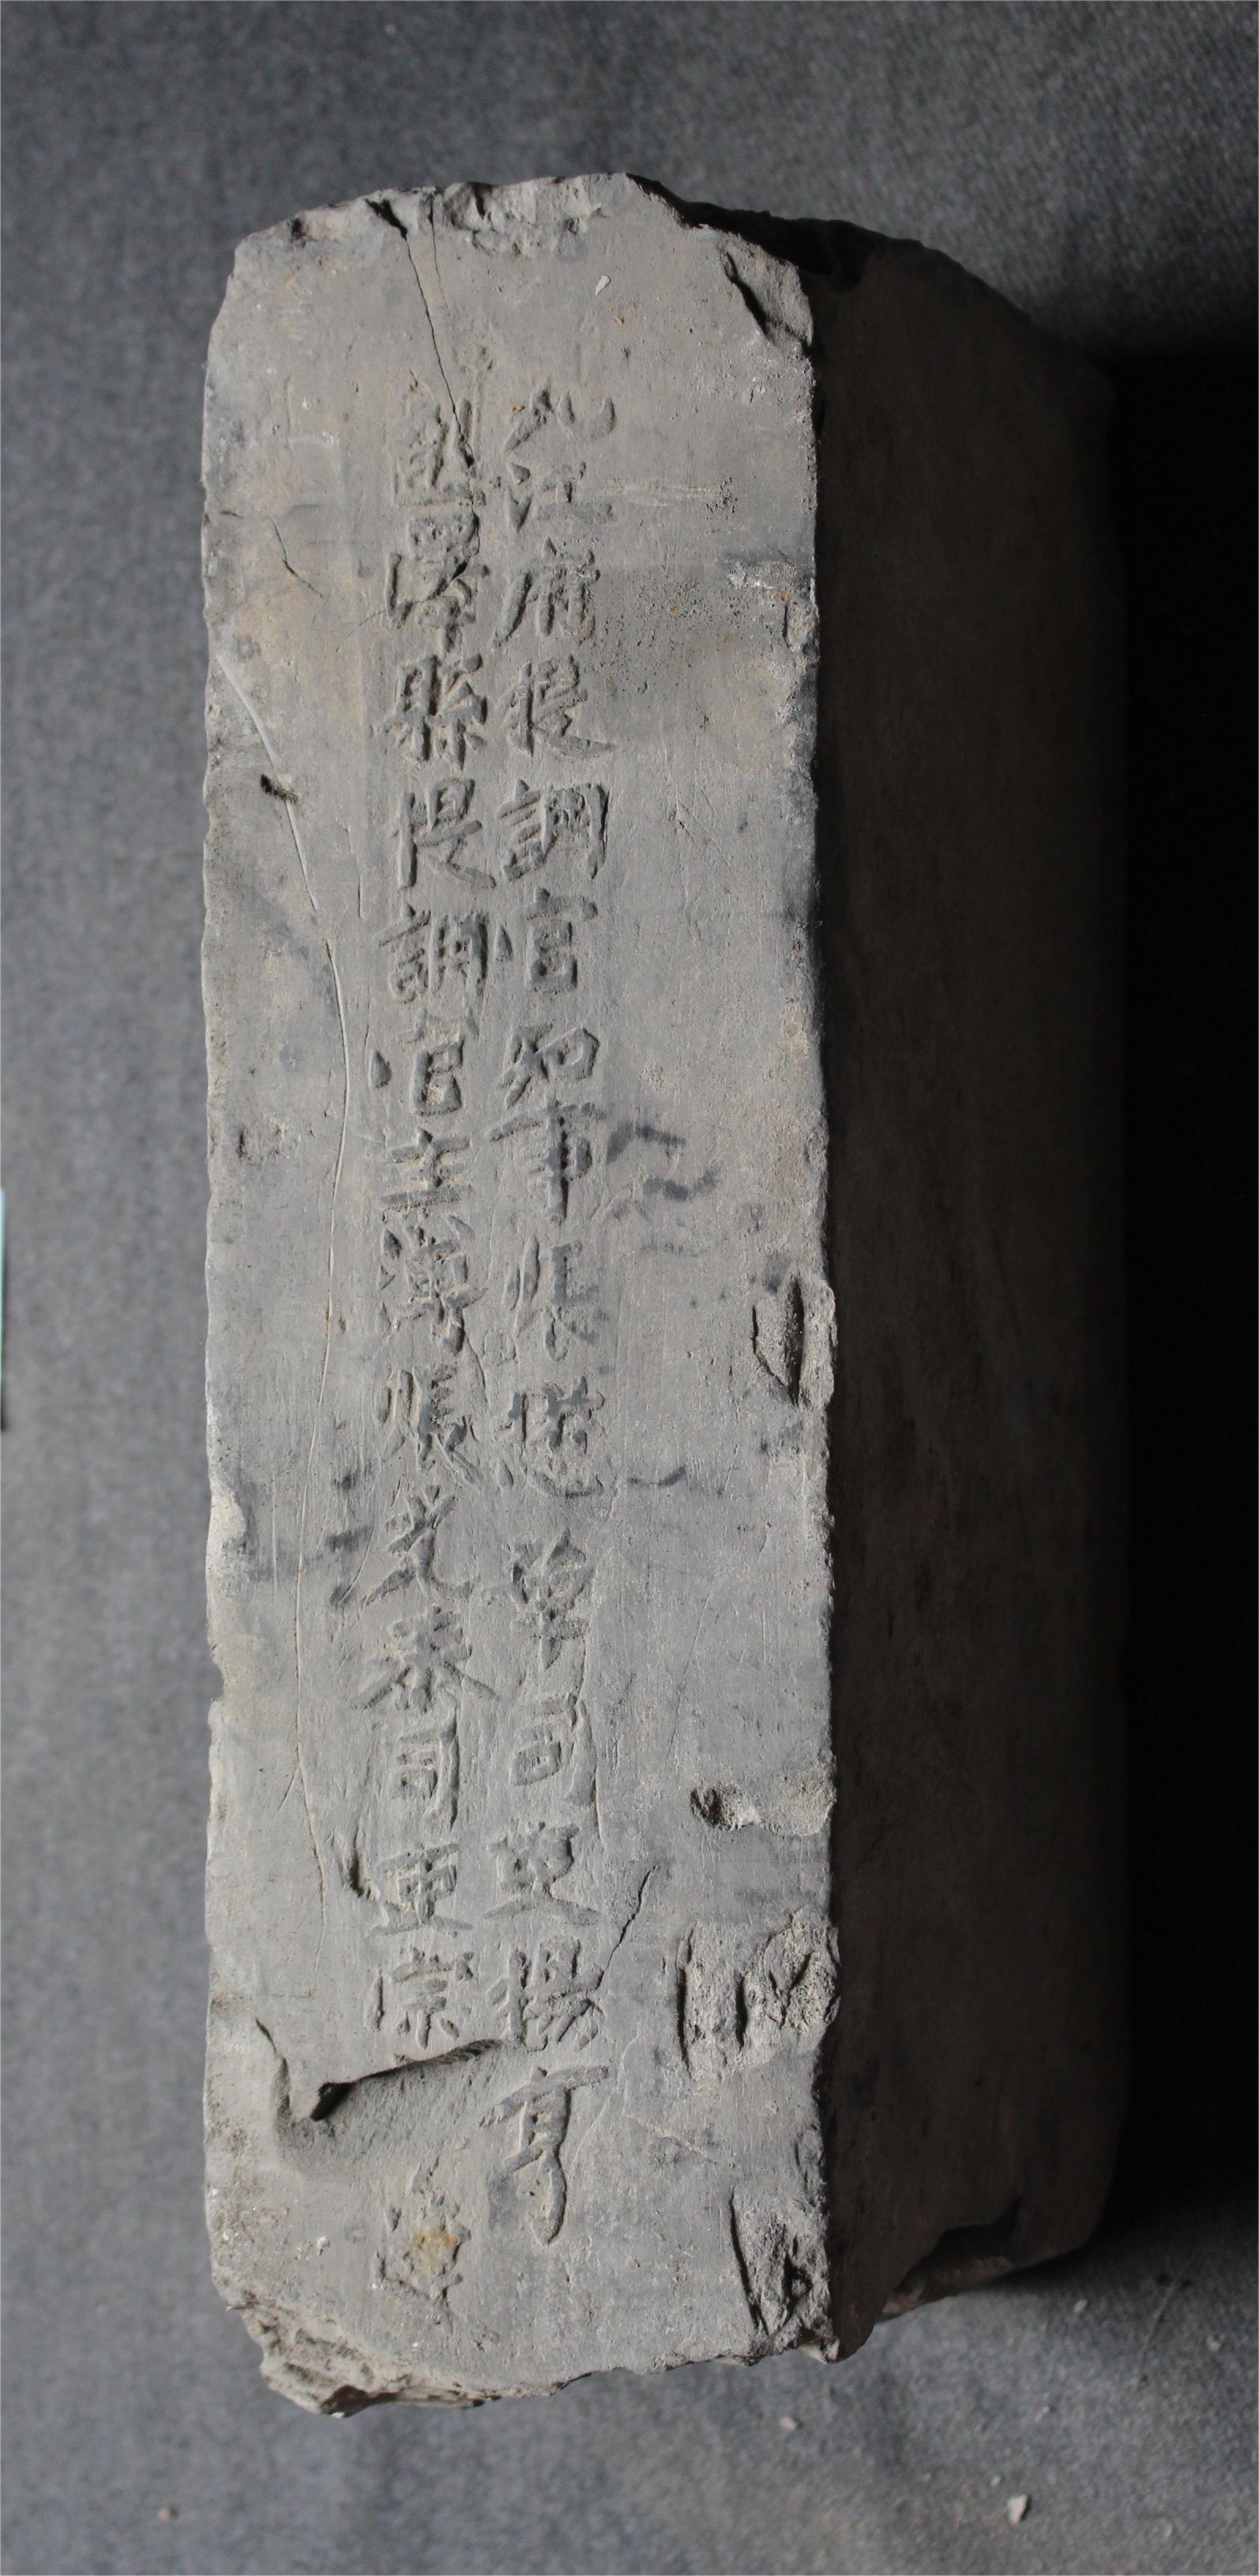 九江府提調官知事張㦤單司吏楊亨
彭澤縣提調官主簿張光泰司吏宗